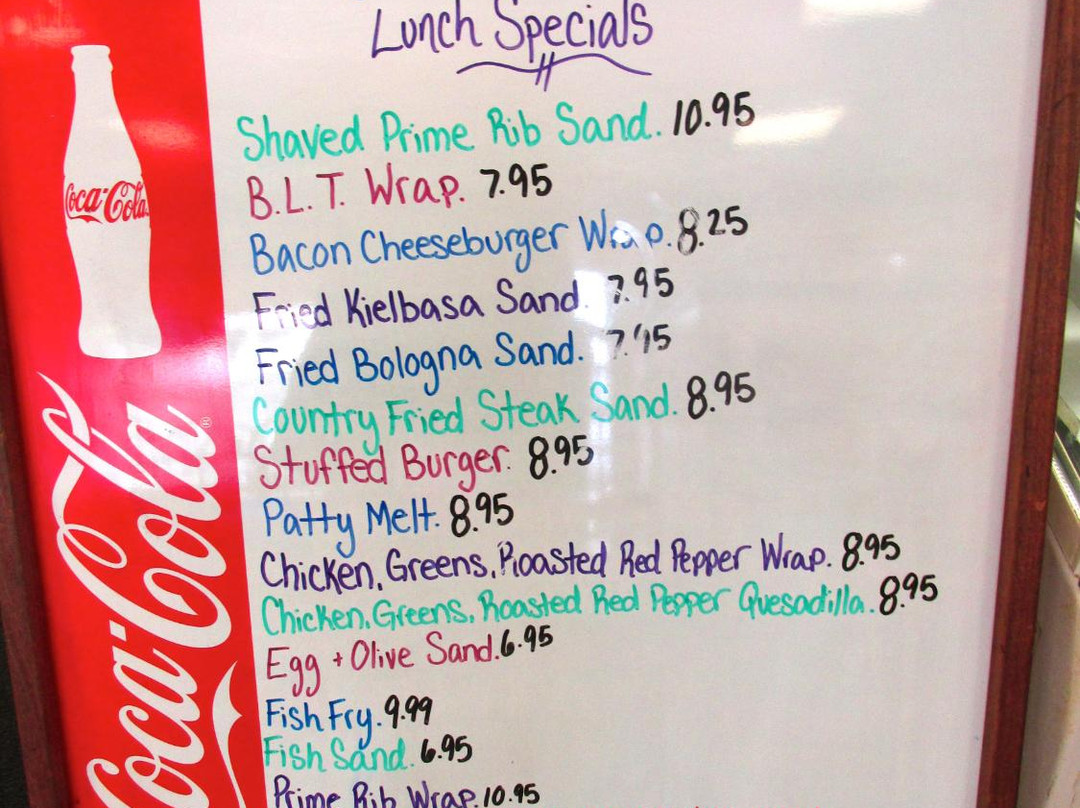 Lunch Specials
Shaved Prime Rib Sand. 10.95
B.L.T. Wrap. 7.95
Bacon Cheeseburger Wrap. 8.25
Fried Kielbasa Sand. 7.95
Fried Bologna Sand. 7.95
Country Fried Steak Sand. 8.95
Stuffed Burger. 8.95
Patty Melt. 8.95
Chicken, Greens, Roasted Red Pepper Wrap. 8.95
Chicken, Greens, Roasted Red Pepper Quesadilla. 8.95
Egg + Olive Sand. 6.95
Fish Fry. 9.99
Fish Sand. 6.95
Prime Rib Wrap. 10.95
Coca-Cola
Coca-Cola®